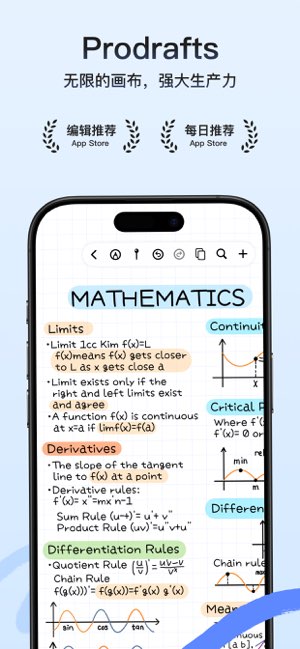 Prodrafts
无限的画布，强大生产力
编辑推荐
App Store
每日推荐
App Store
MATHEMATICS
Limits
•Limit 1cc Kim f(x)=L
f(x)means f(x) gets closer
to L as x gets close a
•Limit exists only if the
right and left limits exist
and agree
•A function f(x) is continuous
at x=a if limf(x)=f(a)
Derivatives
•The slope of the tangent
line to f(x) at a point
•Derivative rules:
f'(x)= x"=mx'n-1
Sum Rule (u→)'= u'+ v"
Product Rule (uv)'=u"v+u"
Differentiation Rules
•Quotient Rule (u/v)'= u'v-v'/v²
Chain Rule
f(g(x)))'= f(g(x))=f'g(x) g'(x)
sin cos tan
Continuit
x
Critical P
Where f'(
f'(x)= 0 or
rel
min
m
Differen
Chain rule
ma
Mean